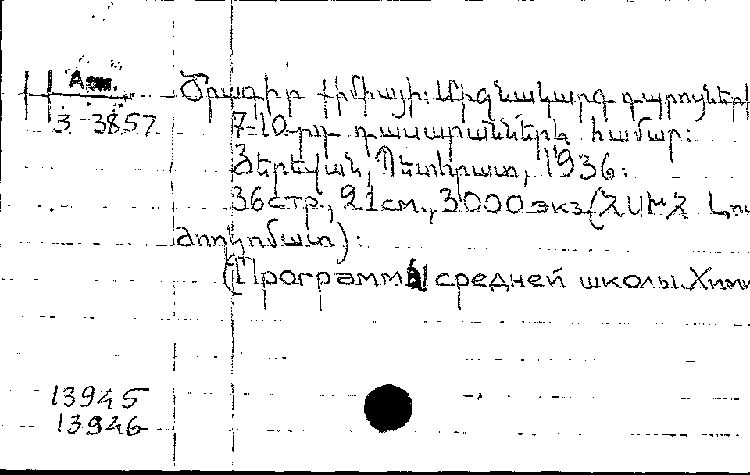 Арм.
3-3857
Ծրագիր քիմիայի: Միջնակարգ դպրոցների
7-10-րդ դասարանների համար:
Յերեվան, Պետհրատ, 1936:
36стр., 21см., 3000экз. (ՀՍԽՀ Լու
ժողկոմատ):
(Программы средней школы. Хими
13945
13946